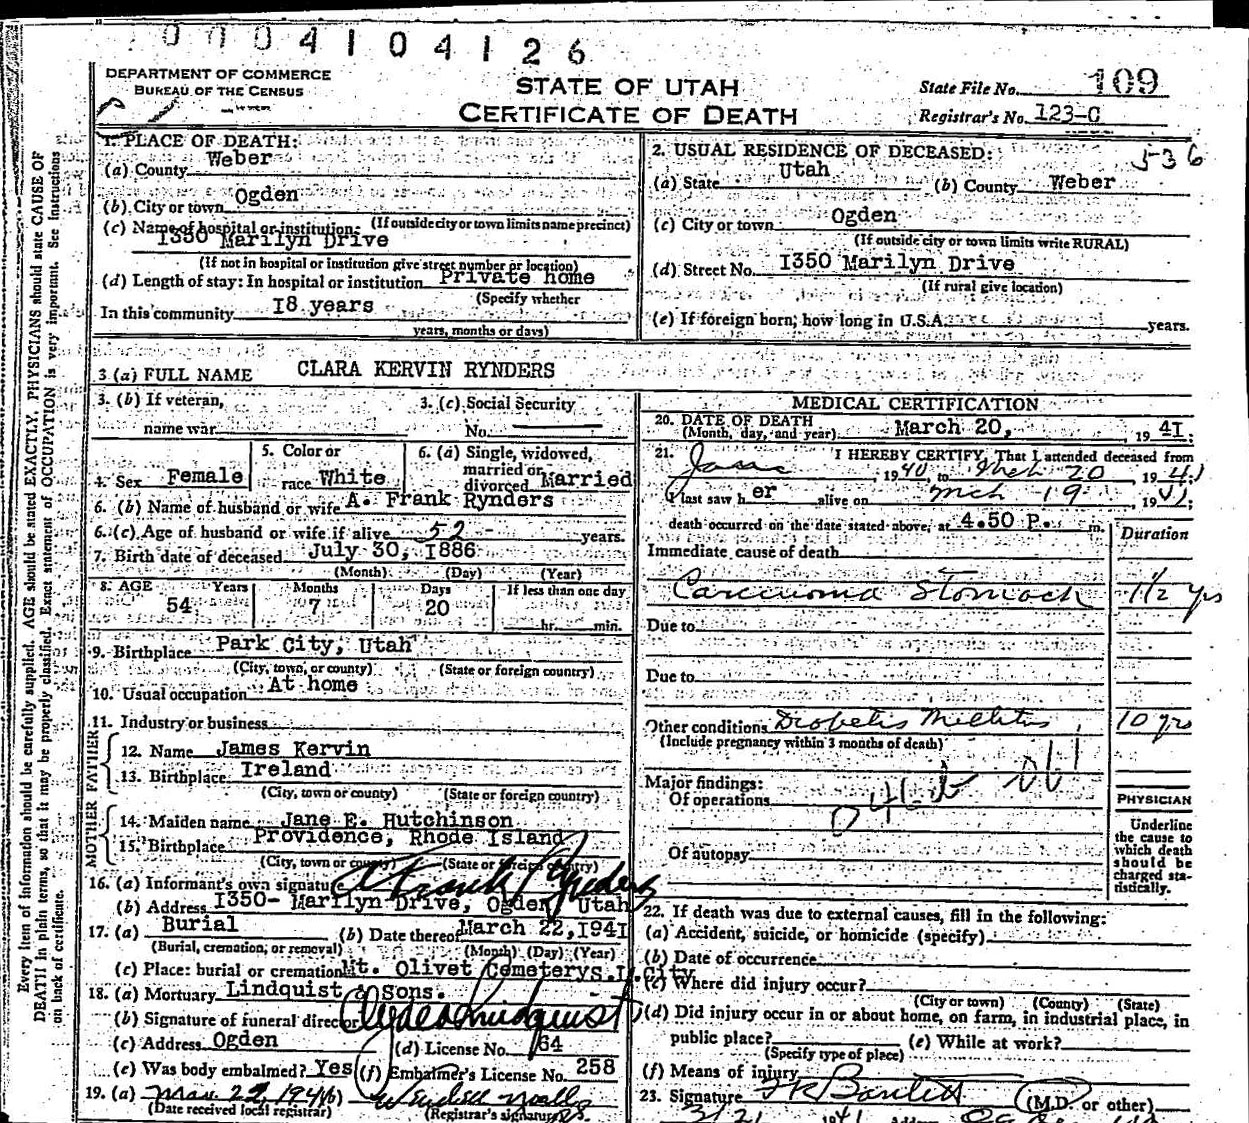 0004104126
DEPARTMENT OF COMMERCE
BUREAU OF THE CENSUS
STATE OF UTAH
CERTIFICATE OF DEATH
State File No. 109
Registrar's No. 123-C
536
1. PLACE OF DEATH:
(a) County Weber
(b) City or town Ogden
(If outside city or town limits name precinct)
(c) Name of hospital or institution:
1350 Marilyn Drive
(If not in hospital or institution give street number or location)
(d) Length of stay: In hospital or institution Private home
(Specify whether
In this community 18 years
years, months or days)
2. USUAL RESIDENCE OF DECEASED:
(a) State Utah (b) County Weber
(c) City or town Ogden
(If outside city or town limits write RURAL)
(d) Street No. 1350 Marilyn Drive
(If rural give location)
(e) If foreign born; how long in U.S.A. years.
3 (a) FULL NAME CLARA KERVIN RYNDERS
3. (b) If veteran, name war
3. (c) Social Security No.
4. Sex Female
5. Color or race White
6. (a) Single, widowed, married or divorced Married
6. (b) Name of husband or wife A. Frank Rynders
6. (c) Age of husband or wife if alive 52 years.
7. Birth date of deceased July 30, 1886
(Month) (Day) (Year)
8. AGE Years Months Days If less than one day
54 7 20 hr. min.
9. Birthplace Park City, Utah
(City, town, or county) (State or foreign country)
10. Usual occupation At home
11. Industry or business
FATHER
12. Name James Kervin
13. Birthplace Ireland
(City, town or county) (State or foreign country)
MOTHER
14. Maiden name Jane E. Hutchinson
15. Birthplace Providence, Rhode Island
(City, town or county) (State or foreign country)
16. (a) Informant's own signature A Frank Rynders
(b) Address 1350- Marilyn Drive, Ogden, Utah
17. (a) Burial (b) Date thereof March 22, 1941
(Burial, cremation, or removal) (Month) (Day) (Year)
(c) Place: burial or cremation Mt. Olivet Cemetery S.L. City
18. (a) Mortuary Lindquist & Sons.
(b) Signature of funeral director Clyde Lindquist
(c) Address Ogden (d) License No. 64
(e) Was body embalmed? Yes (f) Embalmer's License No. 258
19. (a) Mar. 22, 1941 (b)
(Date received local registrar) (Registrar's signature)
MEDICAL CERTIFICATION
20. DATE OF DEATH
(Month, day, and year) March 20, 1941:
21. I HEREBY CERTIFY, That I attended deceased from
1940, to Mch 20 1941
I last saw her alive on Mch 19 1941;
death occurred on the date stated above, at 4.50 P. m.
Duration
Immediate cause of death
Carcinoma Stomach 1 1/2 yrs
Due to
Due to
Other conditions Diabetis Millitis 10 yrs
(Include pregnancy within 3 months of death)
Major findings:
Of operations
Of autopsy
PHYSICIAN
Underline
the cause to
which death
should be
charged sta-
tistically.
22. If death was due to external causes, fill in the following:
(a) Accident, suicide, or homicide (specify)
(b) Date of occurrence
(c) Where did injury occur?
(City or town) (County) (State)
(d) Did injury occur in or about home, on farm, in industrial place, in
public place? (e) While at work?
(Specify type of place)
(f) Means of injury
23. Signature Bartlett (M.D. or other)
3/21 1941 Address
Every item of information should be carefully supplied. AGE should be stated EXACTLY. PHYSICIANS should state CAUSE OF
DEATH in plain terms, so that it may be properly classified. Exact statement of OCCUPATION is very important. See Instructions
on back of certificate.